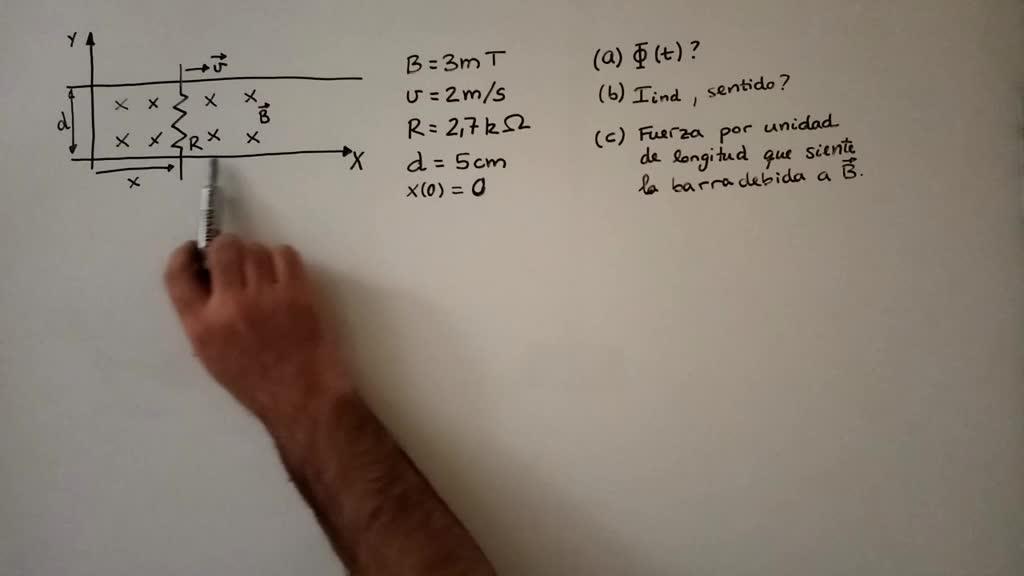 Y
→ v⃗
x x x x
B⃗
d
x x R x x
X
x
B = 3mT
v = 2m/s
R = 2,7kΩ
d = 5cm
x(0) = 0
(a) Φ(t)?
(b) Iind, sentido?
(c) Fuerza por unidad
de longitud que siente
la barra debida a B⃗.